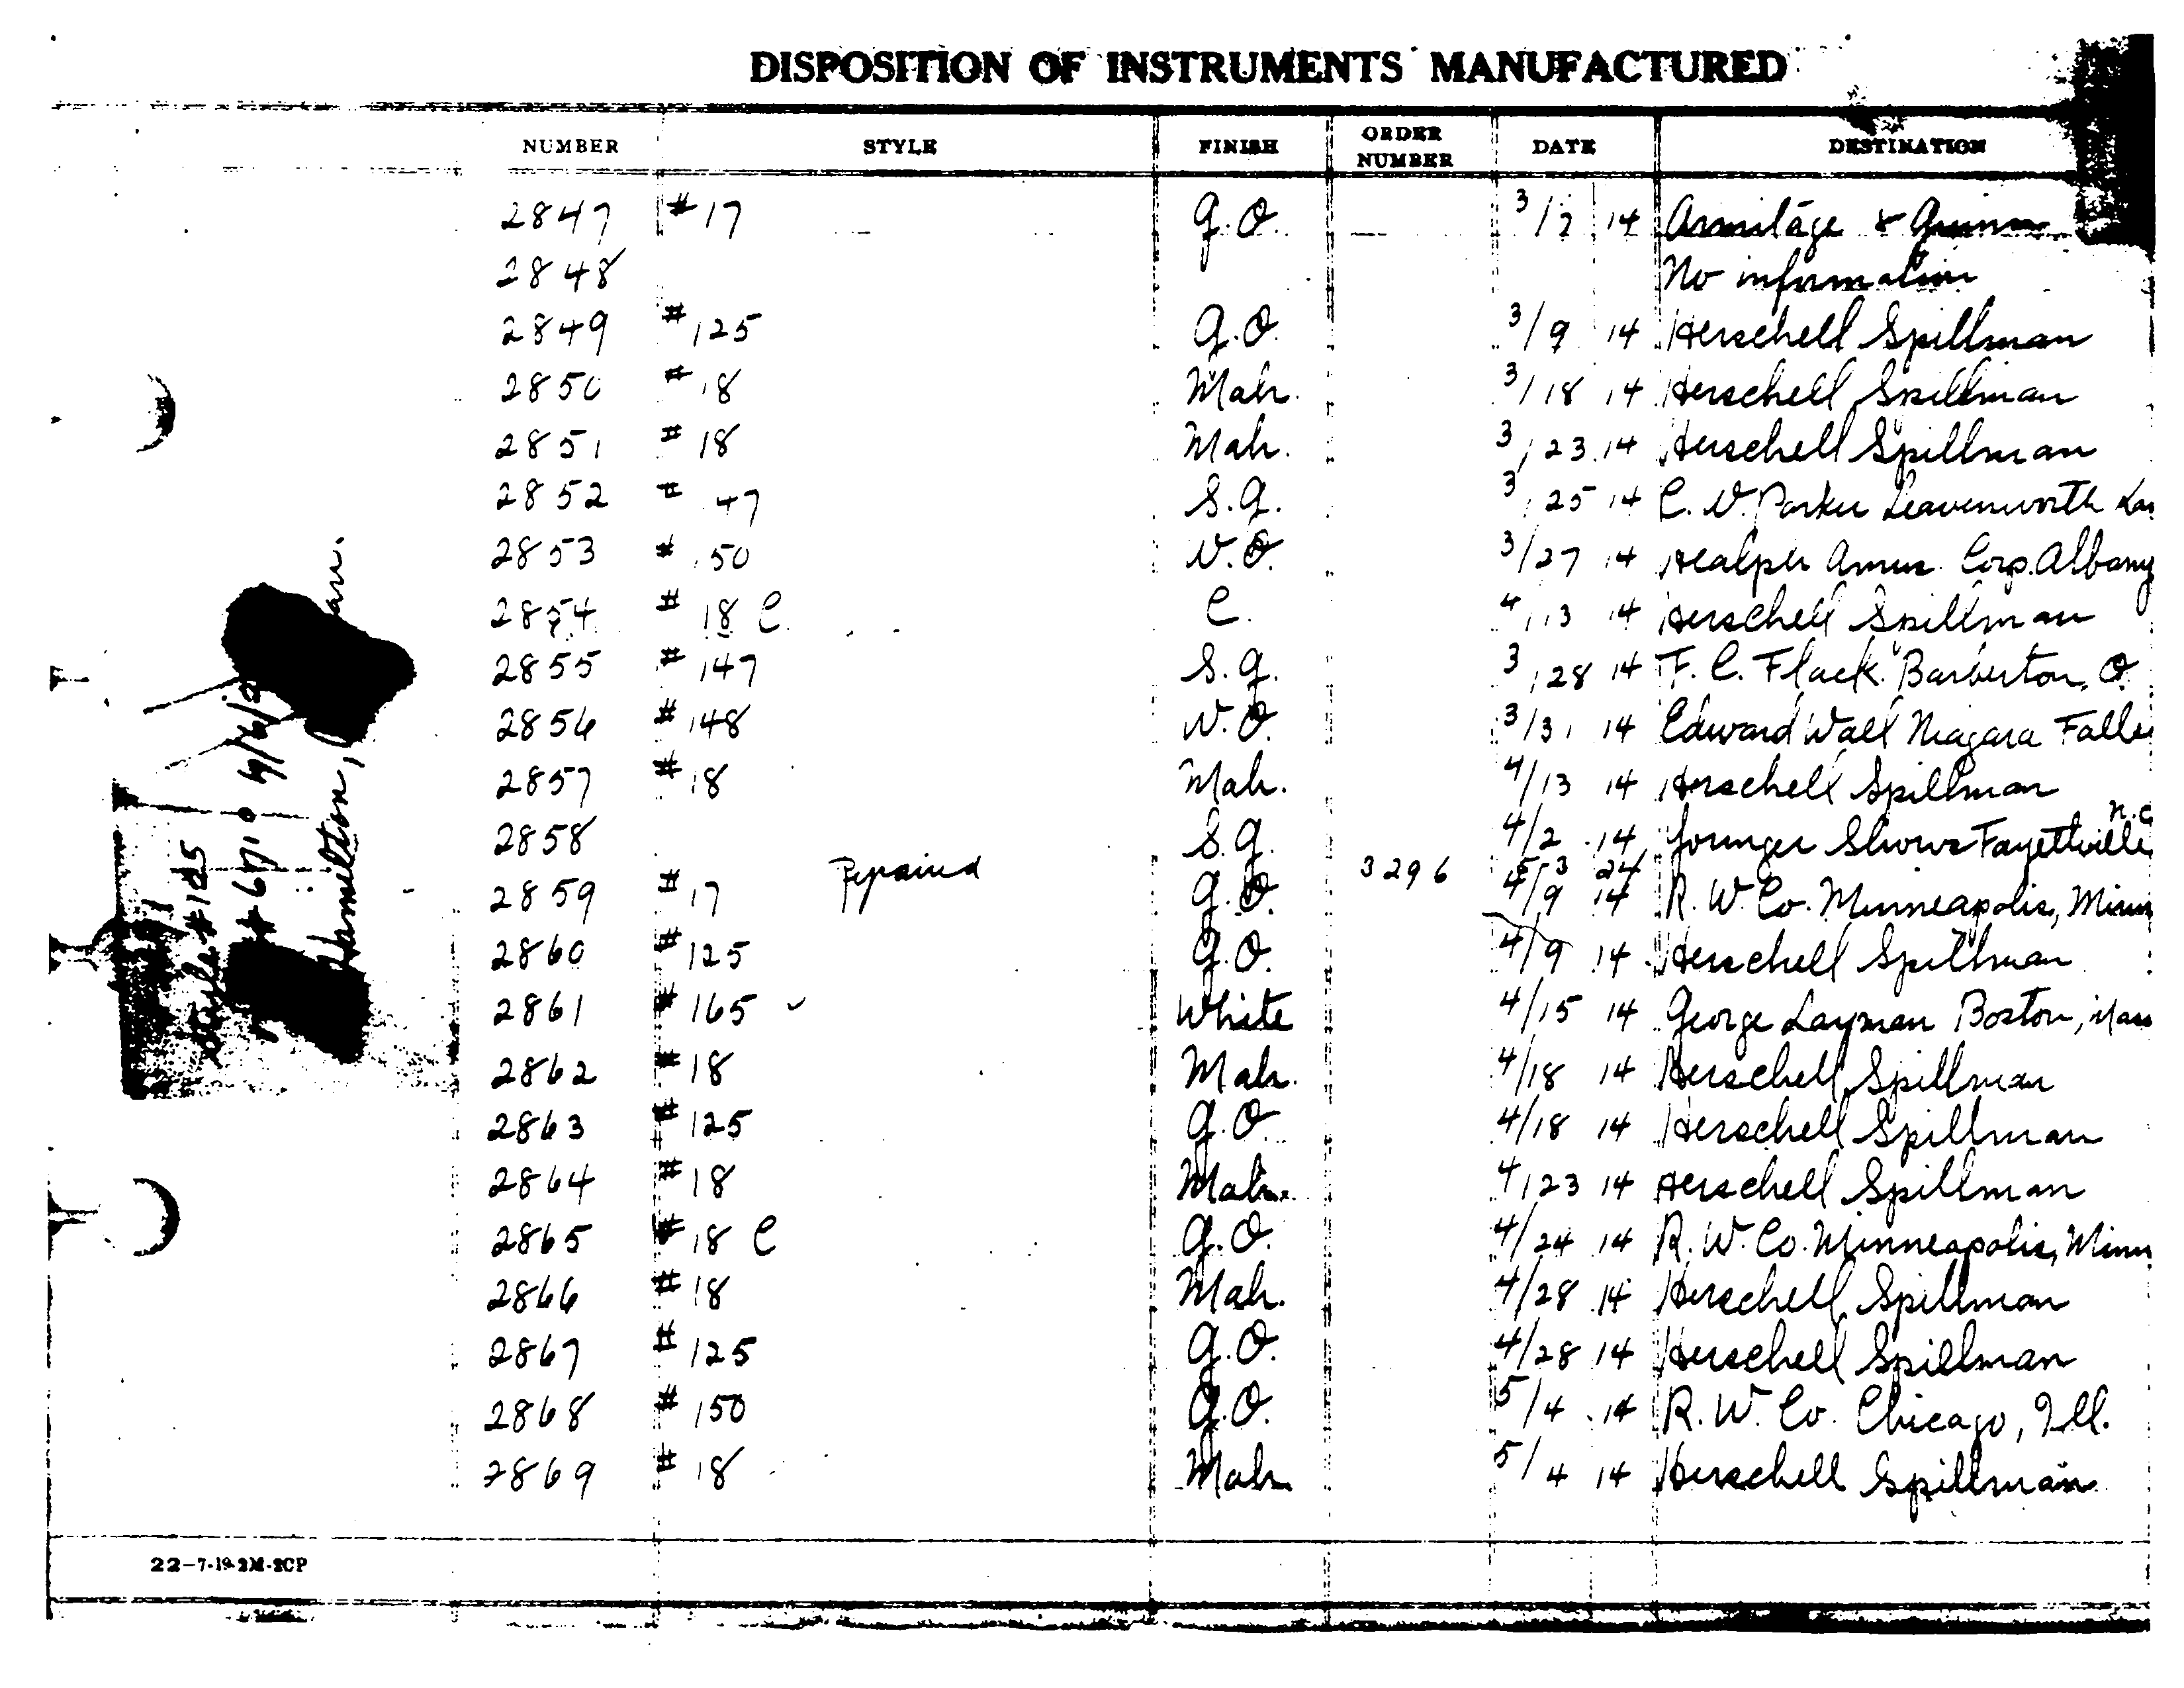 DISPOSITION OF INSTRUMENTS MANUFACTURED
NUMBER STYLE FINISH ORDER NUMBER DATE DESTINATION
2847 #17 G.O. 3/7 14 Armitage & Guinn
2848 No information
2849 #125 G.O. 3/9 14 Herschell Spillman
2850 #18 Mah. 3/18 14 Herschell Spillman
2851 #18 Mah. 3/23 14 Herschell Spillman
2852 # 47 S.G. 3/25 14 C. W. Parker Leavenworth Kan
2853 # 50 W.O. 3/27 14 Amus. Corp. Albany
2854 # 18 C. C. 4/13 14 Herschell Spillman
2855 # 147 S.G. 3/28 14 F. C. Flack Barberton, O.
2856 # 148 W.O. 3/31 14 Edward Wall Niagara Falls
2857 # 18 Mah. 4/13 14 Herschell Spillman
2858 S.G. 4/2 14 Younger Shows Fayettville N.C
Repaired 3296 5 3 24
2859 # 17 G.O. 4/9 14 R. W. Co. Minneapolis, Minn
2860 # 125 G.O. 4/9 14 Herschell Spillman
2861 # 165 ✓ White 4/15 14 George Layman Boston, Mass
2862 # 18 Mah. 4/18 14 Herschell Spillman
2863 # 125 G.O. 4/18 14 Herschell Spillman
2864 # 18 Mah. 4/23 14 Herschell Spillman
2865 # 18 C G.O. 4/24 14 R. W. Co. Minneapolis, Minn
2866 # 18 Mah. 4/28 14 Herschell Spillman
2867 # 125 G.O. 4/28 14 Herschell Spillman
2868 # 150 G.O. 5/4 14 R. W. Co. Chicago, Ill.
2869 # 18 Mah 5/4 14 Herschell Spillman
Style #125
Hamilton,
22-7-19-2M-2CP